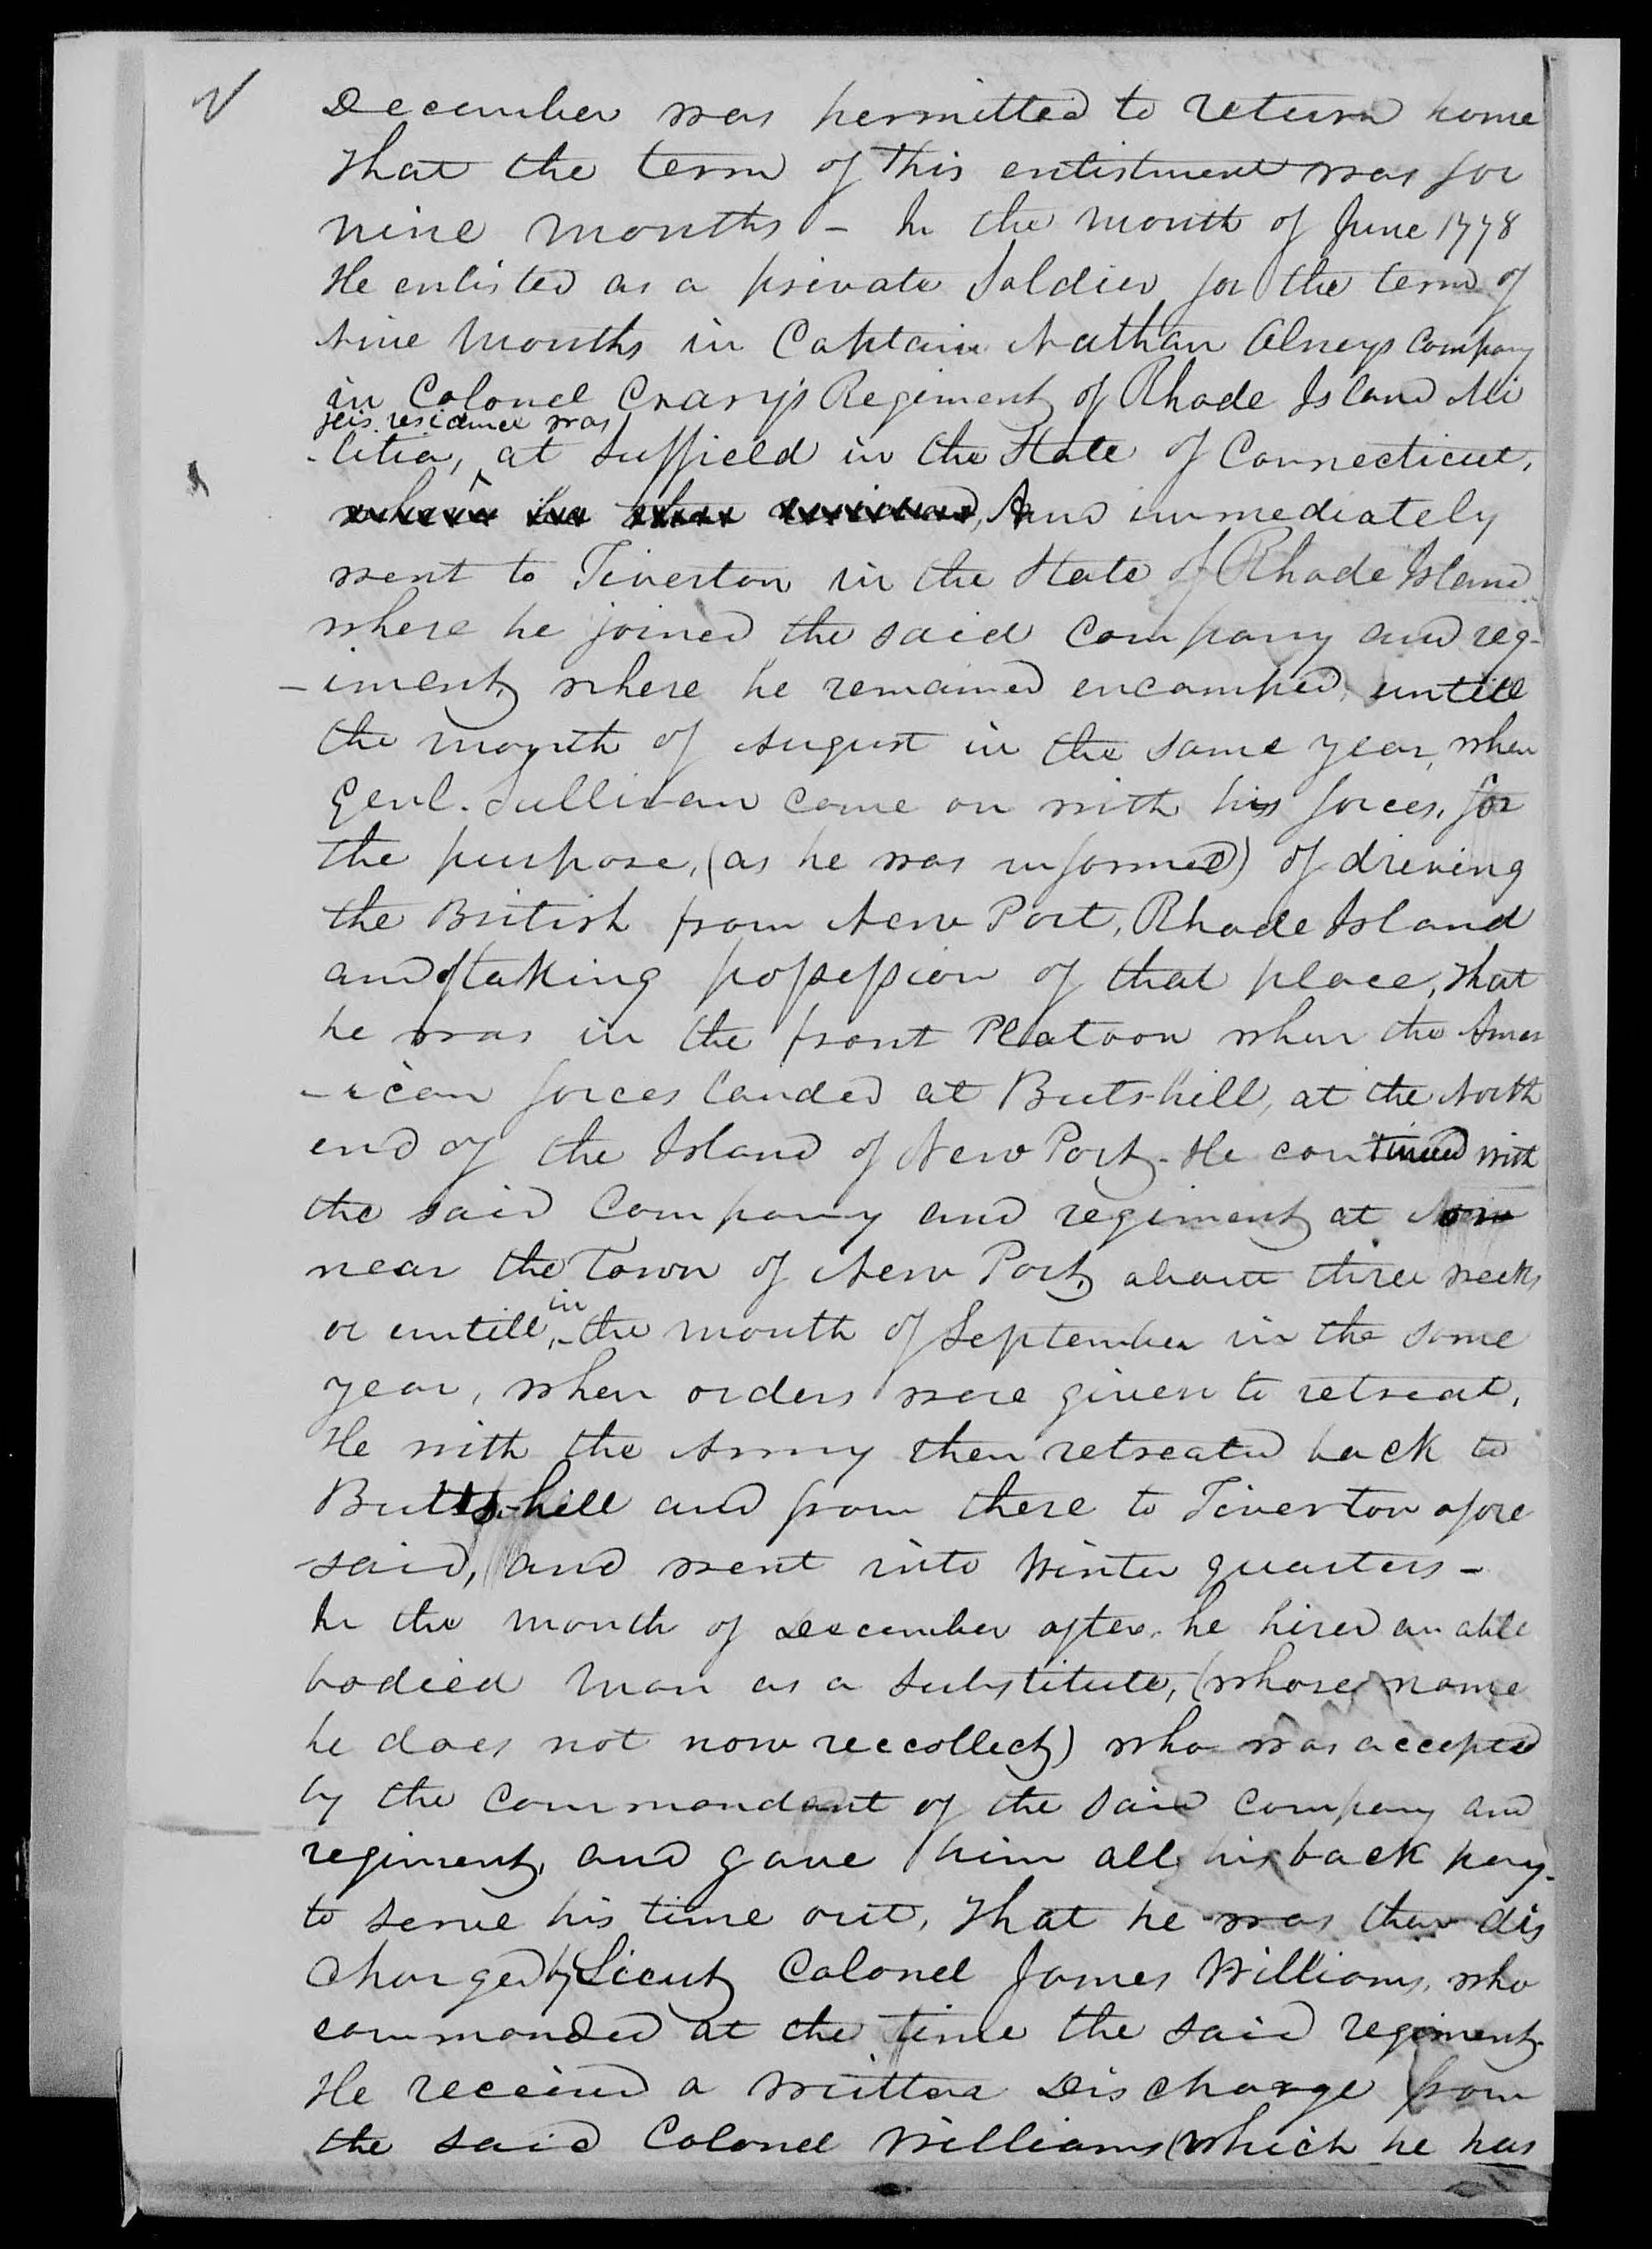 2
December was permitted to return home
that the term of this enlistment was for
nine months - In the month of June 1778
He enlisted as a private Soldier for the term of
Nine Months in Captain Nathan Olneys Company
in Colonel Crary's Regiment of Rhode Island Mi
his residence was
-litia, ^ at Suffield in the State of Connecticut,
And immediately
went to Tiverton in the State of Rhode Island
where he joined the said Company and reg-
-iment, where he remained encamped, untill
the month of August in the same year, when
Genl. Sullivan came on with his forces, for
the purpose, (as he was informed) of driving
the British from New Port, Rhode Island
and of taking possession of that place, that
he was in the front Platoon when the Amer
-ican forces landed at Buts-hill, at the North
end of the Island of New Port. He continued with
the said Company and regiment at
near the Town of New Port, about three weeks
or untill, in the month of September in the same
year, when orders were given to retreat,
He with the Army then retreated back to
Butts-hill and from there to Tiverton afore
-said, and went into Winter quarters -
In the month of December after, he hired an able
bodied man as a substitute, (whose name
he does not now reccollect) who was accepted
by the Commandant of the said Company and
regiment, and gave him all his back pay-
to serve his time out, that he was then dis
charged by Lieut Colonel James Williams, who
commanded at the time the said regiment.
He received a written Discharge from
the said Colonel Williams (which he has